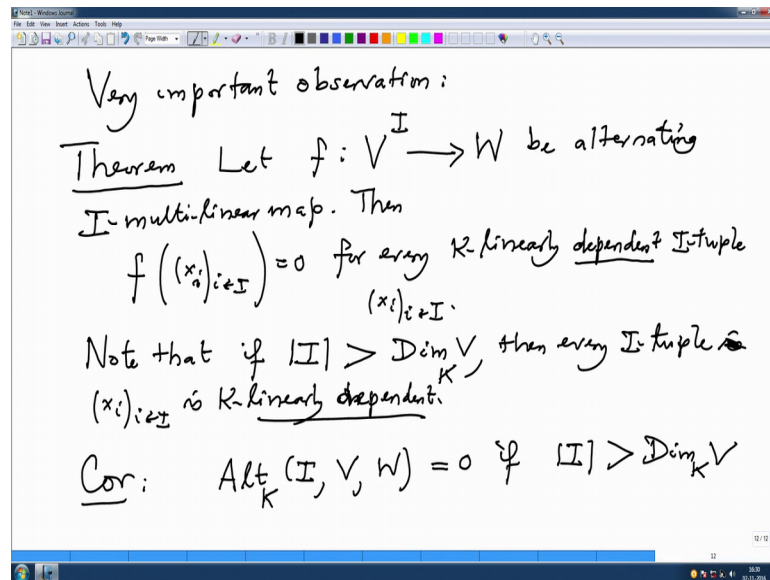 Note1 - Windows Journal
File Edit View Insert Actions Tools Help
Page Width
Very important observation:
Theorem Let f : V^I → W be alternating
I-multi-linear map. Then
f((x_i)_{i∈I}) = 0 for every K-linearly dependent I-tuple
(x_i)_{i∈I}.
Note that if |I| > Dim_K V, then every I-tuple
(x_i)_{i∈I} is K-linearly dependent.
Cor: Alt_K (I, V, W) = 0 if |I| > Dim_K V
12 / 12
12
16:30
02-11-2016